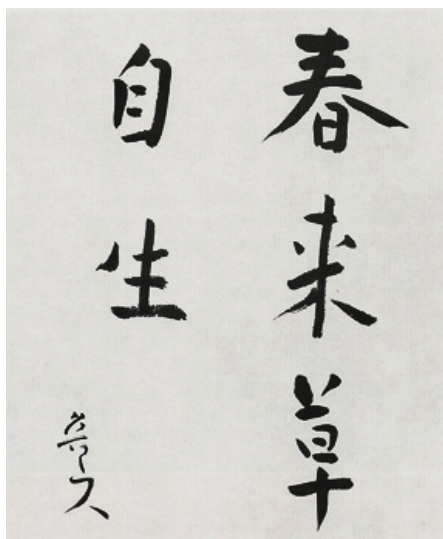 春来草
自生